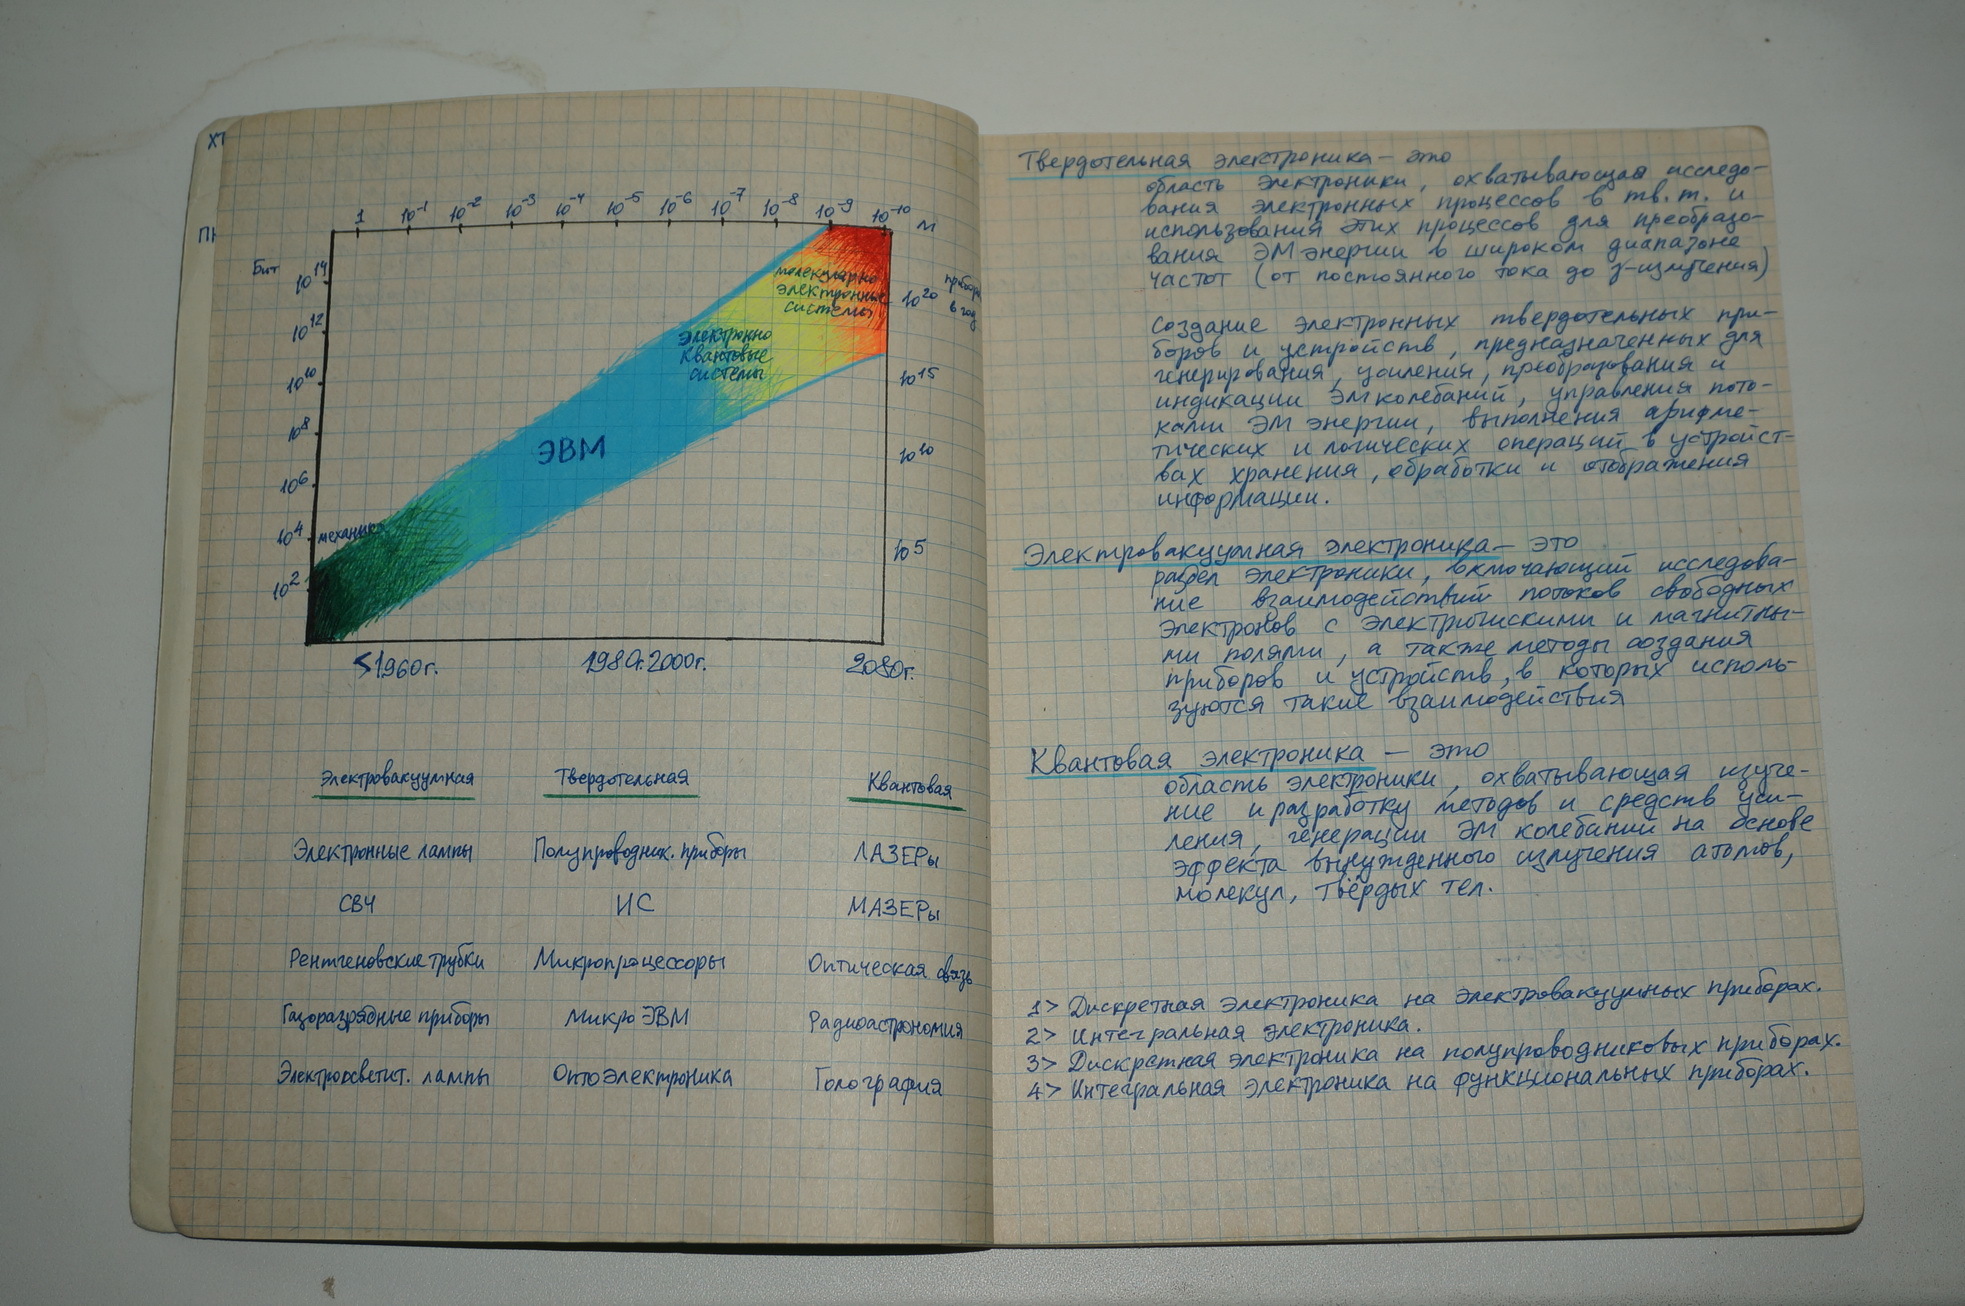 ХТ
ПН
1 10⁻¹ 10⁻² 10⁻³ 10⁻⁴ 10⁻⁵ 10⁻⁶ 10⁻⁷ 10⁻⁸ 10⁻⁹ 10⁻¹⁰ м
Бит
10¹⁴
10¹²
10¹⁰
10⁸
10⁶
10⁴
10²
механич
ЭВМ
Электронно
квантовые
системы
молекулярно
электронные
системы
приборов
в год
10²⁰
10¹⁵
10¹⁰
10⁵
≤1960г. 1980г.2000г. 2080г.
Электровакуумная Твердотельная Квантовая
Электронные лампы Полупроводник. приборы ЛАЗЕРы
СВЧ ИС МАЗЕРы
Рентгеновские трубки Микропроцессоры Оптическая связь
Газоразрядные приборы Микро ЭВМ Радиоастрономия
Электроосветит. лампы Оптоэлектроника Голография
Твердотельная электроника – это
область электроники, охватывающая исследо-
вания электронных процессов в тв.т. и
использования этих процессов для преобразо-
вания ЭМ энергии в широком диапазоне
частот (от постоянного тока до γ-излучения)
Создание электронных твердотельных при-
боров и устройств, предназначенных для
генерирования, усиления, преобразования и
индикации ЭМ колебаний, управления пото-
ками ЭМ энергии, выполнения арифме-
тических и логических операций в устройст-
вах хранения, обработки и отображения
информации.
Электровакуумная электроника – это
раздел электроники, включающий исследова-
ние взаимодействий потоков свободных
электронов с электрическими и магнитны-
ми полями, а также методы создания
приборов и устройств, в которых исполь-
зуются такие взаимодействия
Квантовая электроника – это
область электроники, охватывающая изуче-
ние и разработку методов и средств уси-
ления, генерации ЭМ колебаний на основе
эффекта вынужденного излучения атомов,
молекул, твёрдых тел.
1> Дискретная электроника на электровакуумных приборах.
2> Интегральная электроника.
3> Дискретная электроника на полупроводниковых приборах.
4> Интегральная электроника на функциональных приборах.